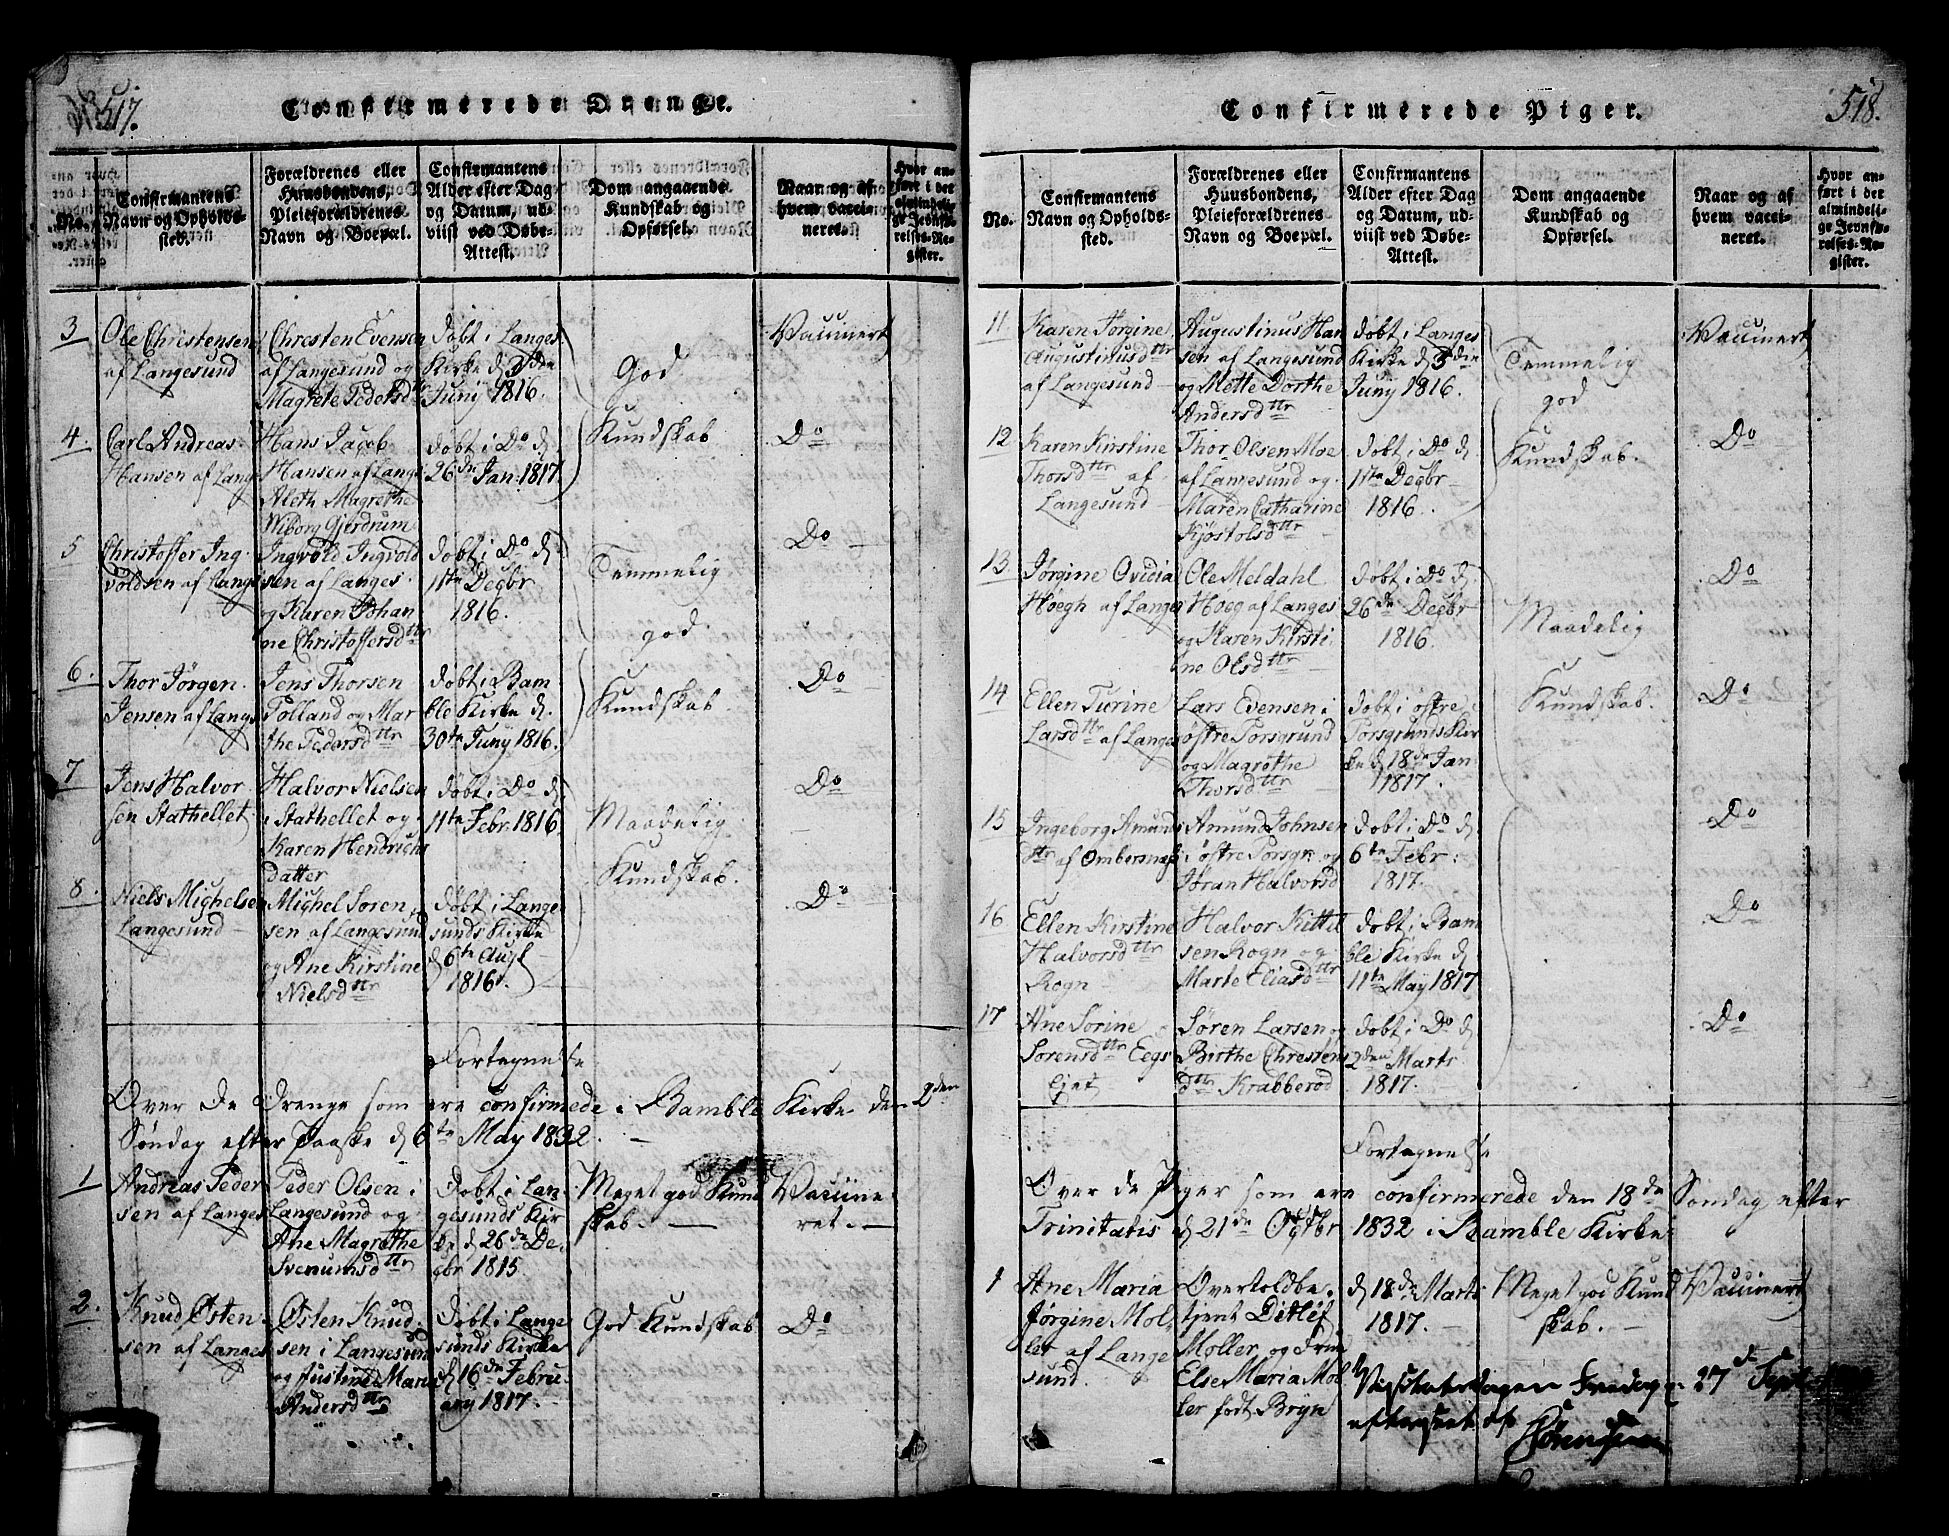 517.
Confirmerede Drenge.
No.
Confirmantens
Navn og Opholds-
sted.
Forældrenes eller
Huusbondens,
Pleieforældrenes
Navn og Boepæl.
Confirmantens
Alder efter Dag
og Datum, ud-
viist ved Døbe-
Attest.
Dom angaaende
Kundskab og
Opførsel.
Naar og af
hvem vacci-
neret.
Hvor an-
ført i det
almindeli-
ge Jevnfø-
relses-Re-
gister.
3
Ole Christensen
af Langesund
Chresten Evensen
af Langesund og
Magrete Pedersdttr
døbt i Langes
Kirke d 3die
Juny 1816.
God
Kundskab
Vaccinert
4.
Carl Andreas
Hansen af Lang
Hans Jacob
Hansen af Langs
Aleth Magrethe
Wiborg Gjerdrum
døbt i Do d
26de Jan: 1817
Do
5
Christoffer Ing
voldsen af Langs
Ingvold Ingvold
sen af Langes
og Karen Johan
ne Christoffersdttr
døbt i Do d
11te Decbr
1816.
Temmelig
god
Kundskab.
Do
6.
Thor Jørgen
Jensen af Langs
Jens Thorsen
Tolland og Mar
the Pedersdttr
døbt i Bam
ble Kirke d.
30te Juny 1816.
Do
7
Jens Halvor
sen Stathellet
Halvor Nielsen
i Stathellet og
Karen Hendrichs
datter
døbt i Do d
11te Febr. 1816
Maadelig
Kundskab.
Do
8.
Niels Mighelsen
Langesund
Mighel Søren
sen af Langesund
og Ane Kirstine
Nielsdttr
døbt i Lange
sunds Kirke
d 6te Augt
1816.
Do
Fortegnelse
Over de Drenge som ere confirmede i Bamble Kirke den 2den
Søndag efter Paaske d 6te May 1832.
1
Andreas Peder
sen af Langes
Peder Olsen i
Langesund og
Ane Magrethe
Svenumsdttr
Døbt i Lan
gesunds Kir
ke d 26de De
cbr 1815.
Meget god Kund
skab.
Vaccine
ret.
2.
Knud Østen
sen af Langes
Østen Knud
sen i Langesund
og Justine Marie
Andersdttr
Døbt i Lange
sunds Kirke
d 16de Febru
ary 1817.
God Kundskab
Do
518.
Confirmerede Piger.
No.
Confirmantens
Navn og Opholds-
sted.
Forældrenes eller
Huusbondens,
Pleieforældrenes
Navn og Boepæl.
Confirmantens
Alder efter Dag
og Datum, ud-
viist ved Døbe-
Attest.
Dom angaaende
Kundskab og
Opførsel.
Naar og af
hvem vacci-
neret.
Hvor an-
ført i det
almindeli-
ge Jevnfø-
relses-Re-
gister.
11
Karen Jørgine
Augustinusdttr
af Langesund
Augustinus Han
sen af Langesund
og Mette Dorthe
Andersdttr
døbt i Langes
Kirke d 3die
Juny 1816.
Temmelig
god
Kundskab.
Vaccinert
12
Karen Kirstine
Thorsdttr af
Langesund
Thor Olsen Moe
af Langesund og
Maren Catharine
Kjøstolsdttr
døbt i Do d
11te Decbr
1816.
Do
13
Jørgine Ovidia
Høegh af Langes
Ole Meldahl
Høeg af Langes
og Karen Kirsti
ne Olsdttr
døbt i Do d.
26de Decbr
1816.
Maadelig
Kundskab.
Do
14
Ellen Turine
Larsdttr af Langes
Lars Evensen i
østre Porsgrund
og Magrethe
Thorsdttr
døbt i østre
Porsgrunds Kir
ke d 18de Jan
1817.
Do
15
Ingeborg Amunds
dttr af Ombersnæs
Amund Johnsen
i østre Porsgr. og
Jøran Halvorsd
døbt i Do d
6te Febr:
1817.
Do
16
Ellen Kirstine
Halvorsdttr
Rogn
Halvor Kittil
sen Rogn og
Marte Eliasdttr
døbt i Bam
ble Kirke d
11te May 1817
Do
17
Ane Sorine
Sørensdttr Eegs
Ejet
Søren Larsen og
Birthe Chrestens
dttr Krabberød
døbt i Do d
2den Marts
1817.
Do
Fortegnelse
Over de Piger som ere confirmerede den 18de Søndag efter
Trinitatis d 21de Octbr 1832 i Bamble Kirke
1
Ane Maria
Jørgine Mol
ler af Lange
sund.
Overtoldbe
tjent Ditlef
Moller og Fru
Else Maria Mol
ler født Bryn
d 18de Marts
1817.
Meget god Kund
skab.
Vaccinert
Fredag 27de Septb
efterseet af
Sørenssen